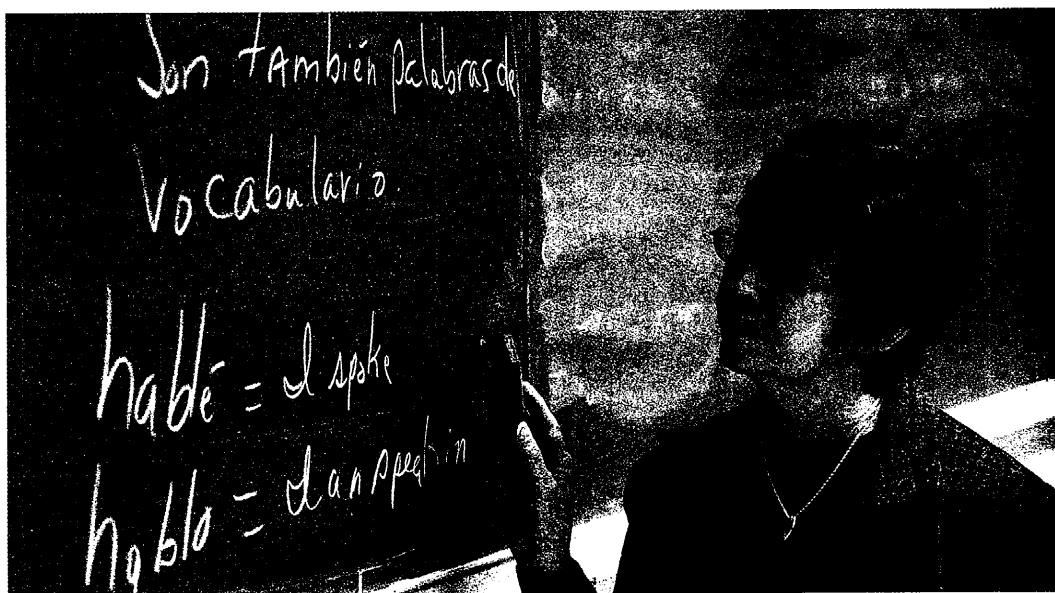 Son tAmbién palabras de
Vocabulario.
hablé = I spoke
hablo = I am speakin